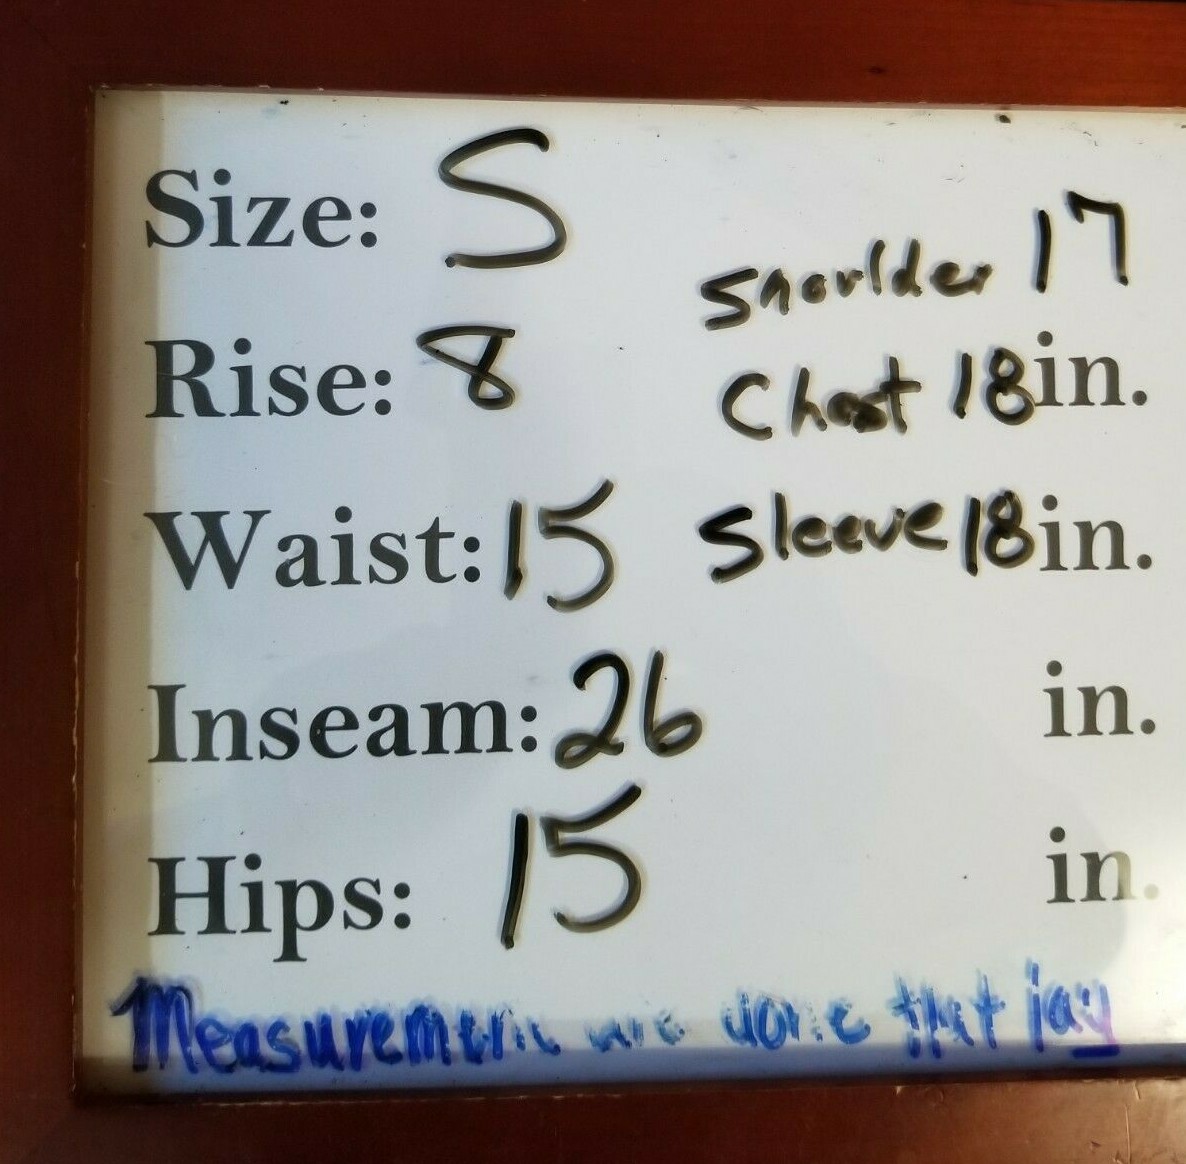 Size: S
Shoulder 17
Rise: 8 Chest 18 in.
Waist: 15 Sleeve 18 in.
Inseam: 26 in.
Hips: 15 in.
Measurement are done that jay